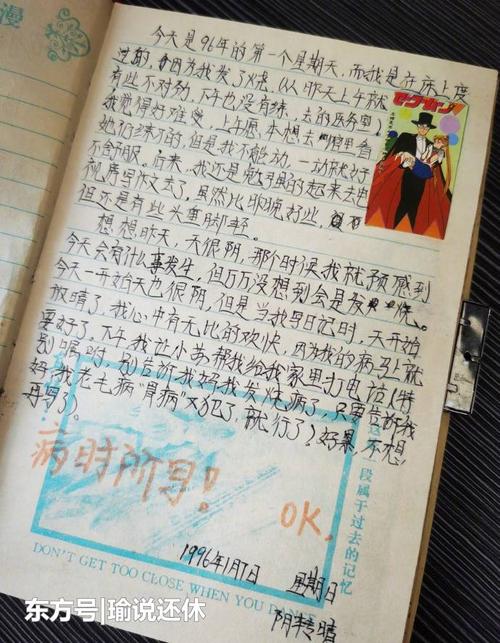 漫
今天是96年的第一个星期天,而我是在床上度
过的,因为我发了烧,(从昨天上午就
有些不对劲,下午也没有练,去的医务室)
我觉得好难受,上午愿,本想去
她们练习的,但是我不能动,一动就好
不舒服。后来,我还是勉强的起来去电
视房写作文去了,虽然比昨晚好些,
但还是有些头重脚轻。
想想昨天,天很阴,那个时候我就预感到
今天会有什么事发生,但万万没想到会是发烧。
今天一开始天也很阴,但是当我写日记时,天开始
放晴了,我心中有无比的欢快,因为我的病马上就
要好了,下午我让小苏帮我给我家里打电话(特
别嘱咐,别告诉我妈我发烧病了,只要告诉我
妈我老毛病“胃病”又犯了,就行了)好累,不想
再写了)
病时阶段!
OK,
1996年1月7日 星期日
阴转晴
段属于过去的记忆
DON'T GET TOO CLOSE WHEN YOU DANCE
东方号|瑜说还休